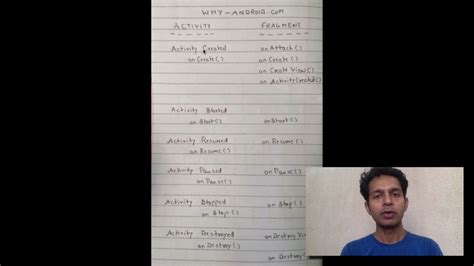 WHY-ANDROID.COM
ACTIVITY FRAGMENT
Activity Created onAttach()
onCreate() onCreate()
onCreateView()
onActivityCreated()
Activity Started
onStart() onStart()
Activity Resumed
onResume() onResume()
Activity Paused
onPause() onPause()
Activity Stopped
onStop() onStop()
Activity Destroyed onDestroy
onDestroy() onDestroy